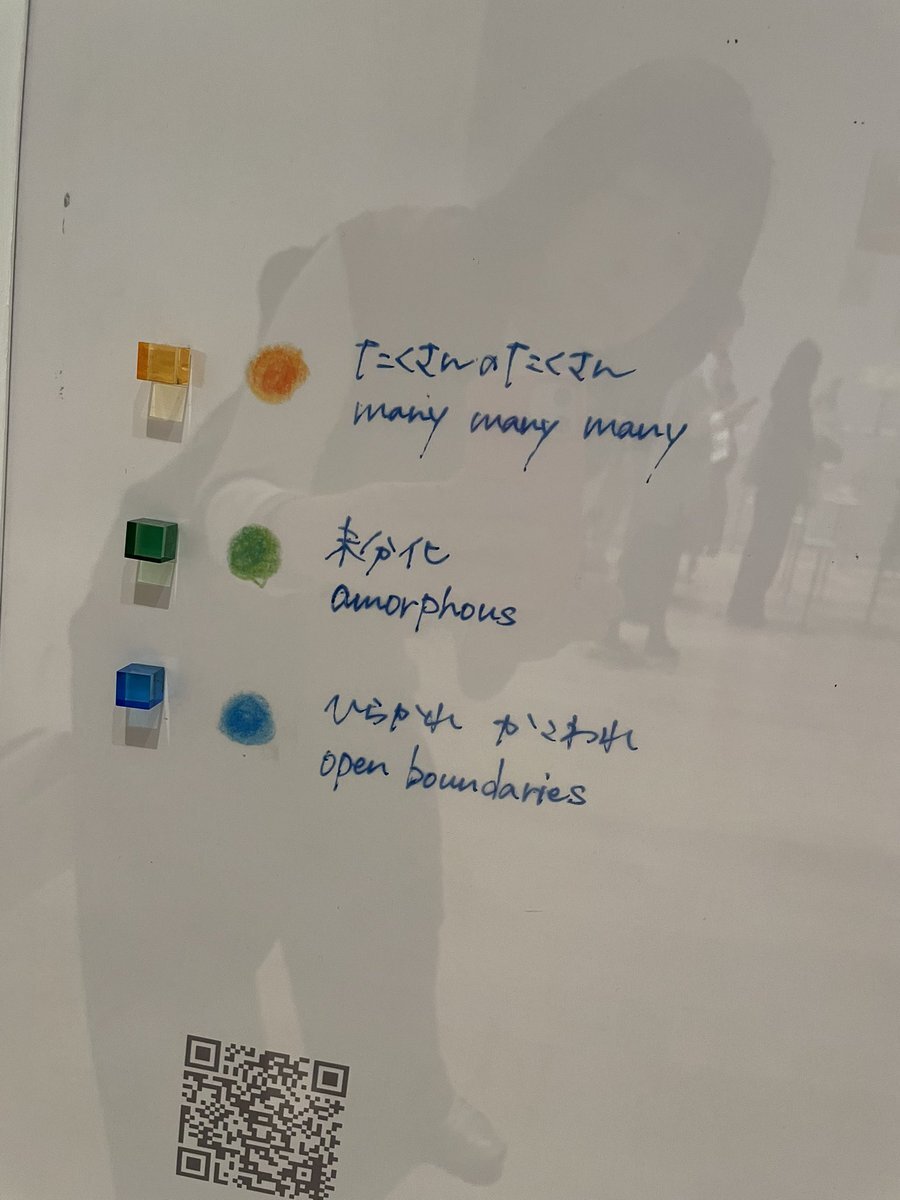 たくさんのたくさん
many many many
未分化
amorphous
ひらかれ かこわれ
open boundaries